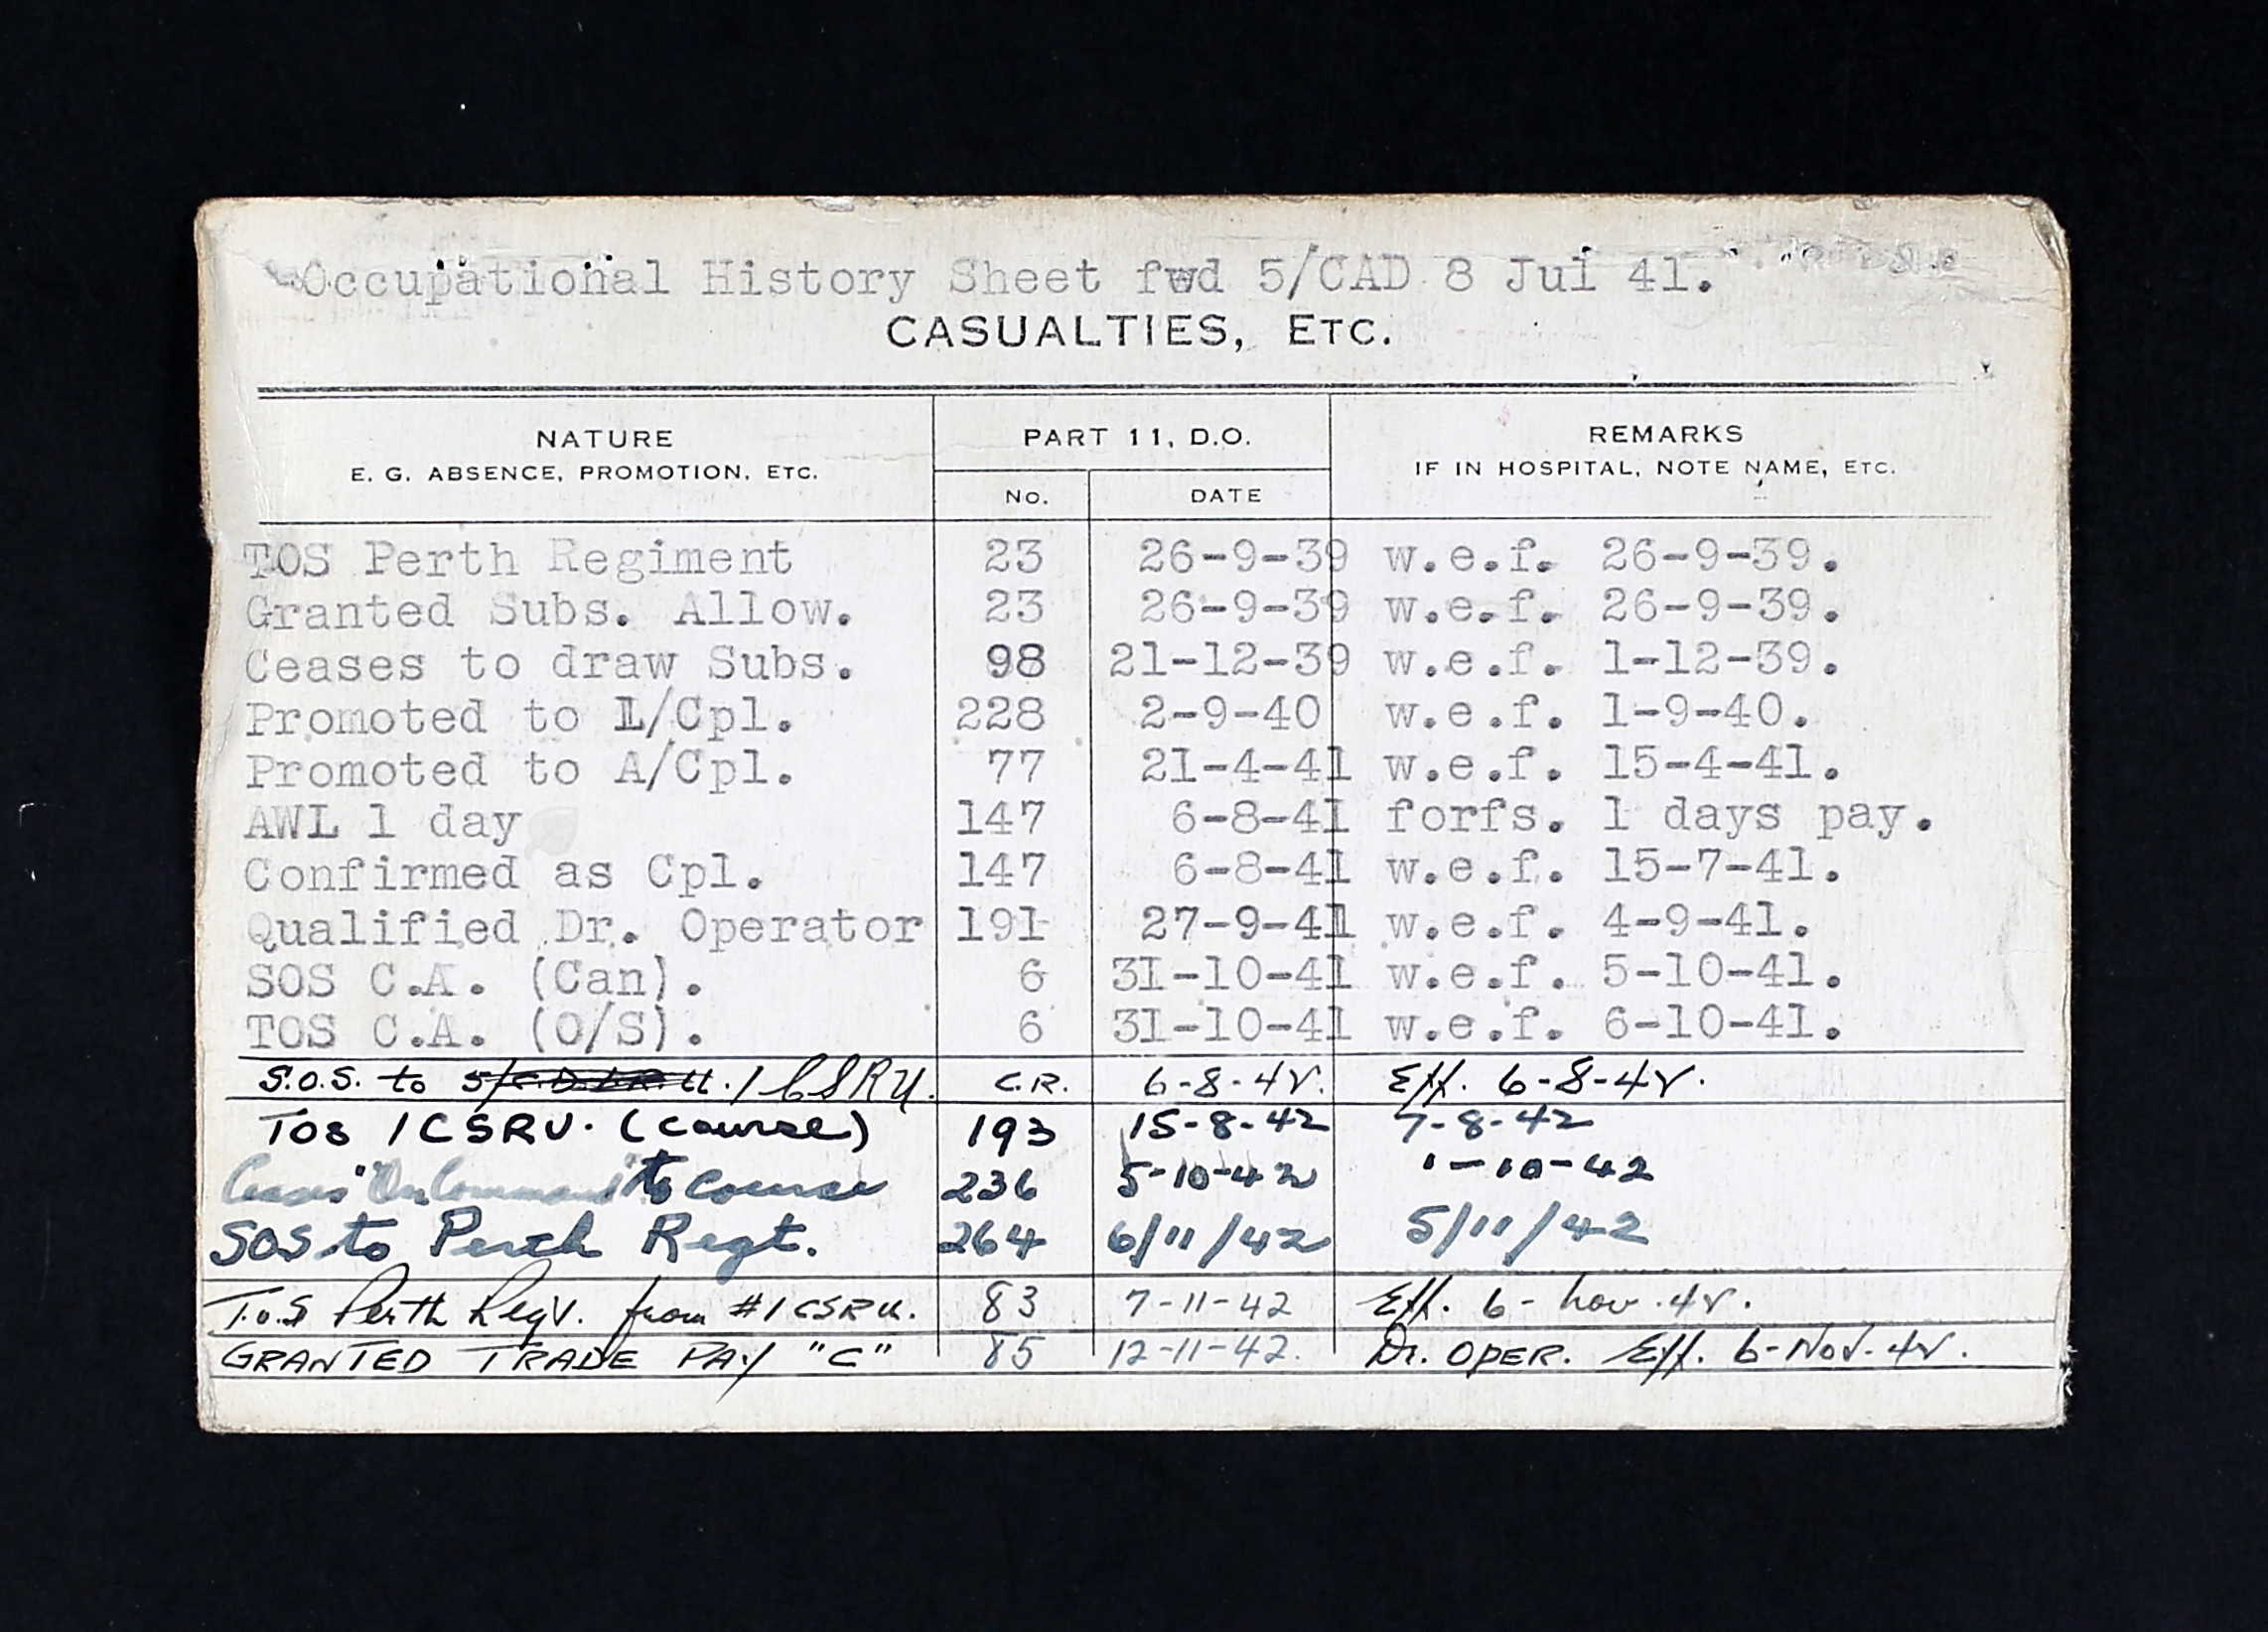 Occupational History Sheet fwd 5/CAD 8 Jul 41.
CASUALTIES, ETC.
NATURE PART 11, D.O. REMARKS
E. G. ABSENCE, PROMOTION, ETC. IF IN HOSPITAL, NOTE NAME, ETC.
No. DATE
TOS Perth Regiment 23 26-9-39 w.e.f. 26-9-39.
Granted Subs. Allow. 23 26-9-39 w.e.f. 26-9-39.
Ceases to draw Subs. 98 21-12-39 w.e.f. 1-12-39.
Promoted to L/Cpl. 228 2-9-40 w.e.f. 1-9-40.
Promoted to A/Cpl. 77 21-4-41 w.e.f. 15-4-41.
AWL 1 day 147 6-8-41 forfs. 1 days pay.
Confirmed as Cpl. 147 6-8-41 w.e.f. 15-7-41.
Qualified Dr. Operator 191 27-9-41 w.e.f. 4-9-41.
SOS C.A. (Can). 6 31-10-41 w.e.f. 5-10-41.
TOS C.A. (O/S). 6 31-10-41 w.e.f. 6-10-41.
S.O.S. to 1 CSRU. C.R. 6-8-42. Eff. 6-8-42.
TOS 1 CSRU. (course) 193 15-8-42 7-8-42
Ceases "On Command" to Course 236 5-10-42 1-10-42
SOS to Perth Regt. 264 6/11/42 5/11/42
T.O.S Perth Regt. from #1 CSRU. 83 7-11-42 Eff. 6-Nov.42.
GRANTED TRADE PAY "C" 85 12-11-42. Dr. OPER. Eff. 6-Nov.42.